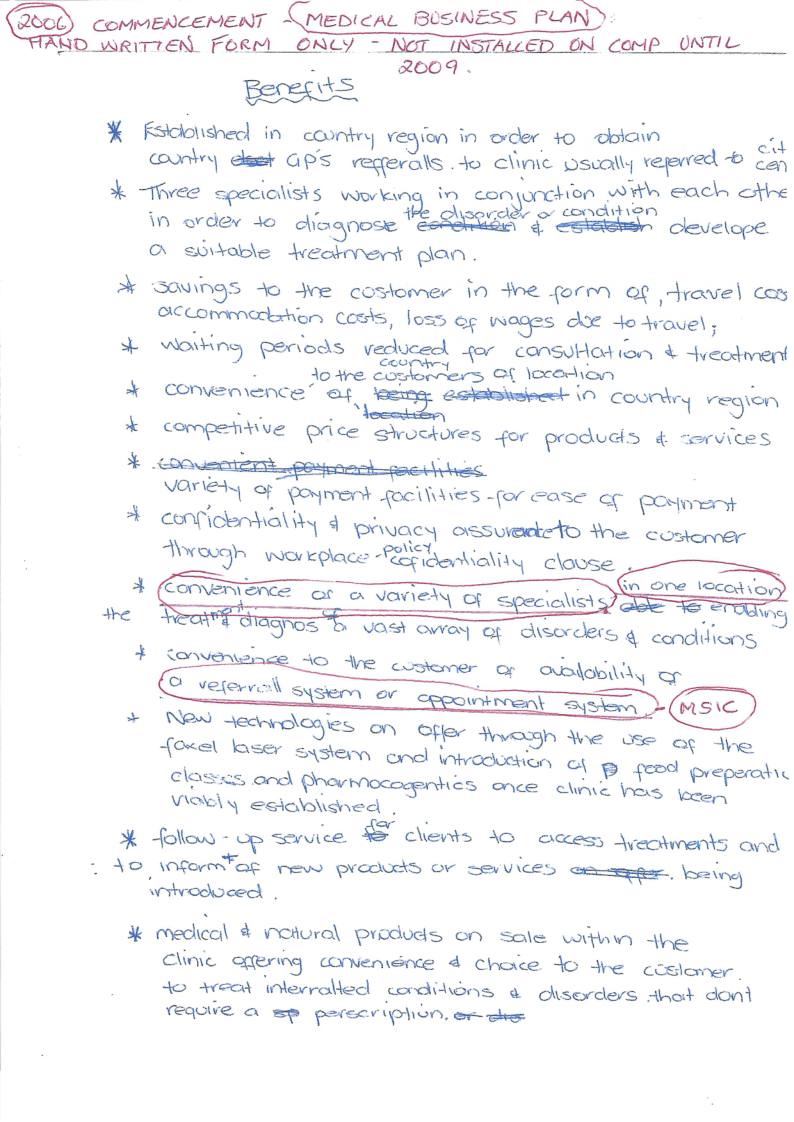 2006 COMMENCEMENT - MEDICAL BUSINESS PLAN:
HAND WRITTEN FORM ONLY - NOT INSTALLED ON COMP UNTIL
2009.
Benefits
* Established in country region in order to obtain
country GP's refferalls. to clinic usually referred to cit
cen
* Three specialists working in conjunction with each othe
in order to diagnose the disorder or condition & develope
a suitable treatment plan.
* savings to the customer in the form of, travel cos
accommodation costs, loss of wages due to travel;
* waiting periods reduced for consultation & treatment
country
to the customers of location
* convenience of, being established in country region
location
* competitive price structures for products & services
* convenient payment facilities
variety of payment facilities for ease of payment
* confidentiality & privacy assured to the customer
through workplace - policy cofidentiality clause.
* convenience of a variety of specialists, in one location able to enabling
the treatment & diagnos of vast array of disorders & conditions
* convenience to the customer of availability of
a referrall system or appointment system - MSIC
* New technologies on offer through the use of the
faxel laser system and introduction of food preperatic
classes and pharmocogentics once clinic has been
viably established.
* follow-up service for clients to access treatments and
: to inform + of new products or services on offer. being
introduced.
* medical & natural products on sale within the
clinic offering convenience & choice to the customer.
to treat interralted conditions & disorders that dont
require a perscription. or